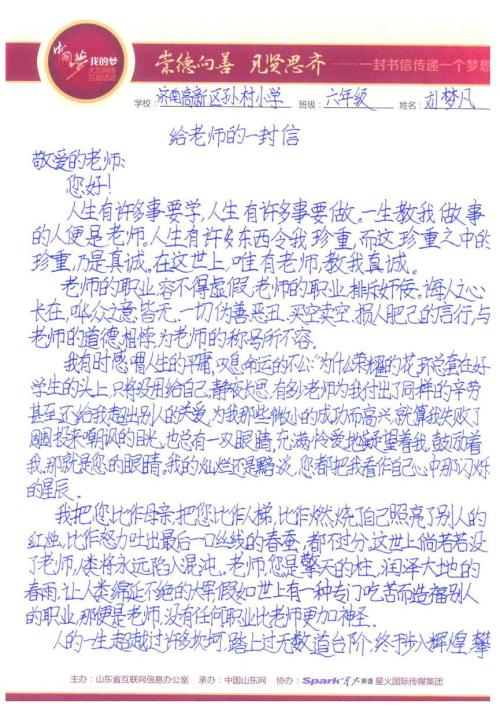 中国梦 我的梦
大型网络
互动活动
崇德向善 见贤思齐 ——一封书信传递一个梦想
学校：济南高新区孙村小学 班级：六年级 姓名：刘梦凡
给老师的一封信
敬爱的老师：
您好！
人生有许多事要学，人生有许多事要做。一生教我做事
的人便是老师。人生有许多东西令我珍重，而这珍重之中的
珍重乃是真诚。在这世上，唯有老师，教我真诚。
老师的职业容不得虚假，老师的职业，排斥奸佞。诲人之心
长在，哗众之意皆无。一切伪善恶丑、买空卖空、损人肥己的言行，与
老师的道德相悖，为老师的称号所不容。
我有时感喟人生的平庸，叹息命运的不公：为什么荣耀的花环总套在好
学生的头上，只将没用给自己，静夜长思，有多少老师为我付出了同样的辛劳
甚至还给我超出别人的关爱，为我那些微小的成功而高兴，就算我失败了
周围投来嘲讽的目光，也总有一双眼睛，充满怜爱地凝望着我，鼓励着
我，那就是您的眼睛，我的灿烂还是黯淡，您都把我看作自己心中那闪烁
的星辰。
我把您比作母亲，把您比作人梯，比作燃烧了自己照亮了别人的
红烛，比作努力吐出最后一口丝线的春蚕，都不过分，这世上倘若若没
了老师，人类将永远陷入混沌。老师，您是擎天的柱，润泽大地的
春雨，让人类绵延不绝的大军假如世上有一种专门吃苦而造福别人
的职业，那便是老师，没有任何职业比老师更加神圣。
人的一生超越过许多坎坷，踏上过无数道台阶，终于步入辉煌，攀
主办：山东省互联网信息办公室 承办：中国山东网 协办：Spark星火英语 星火国际传媒集团